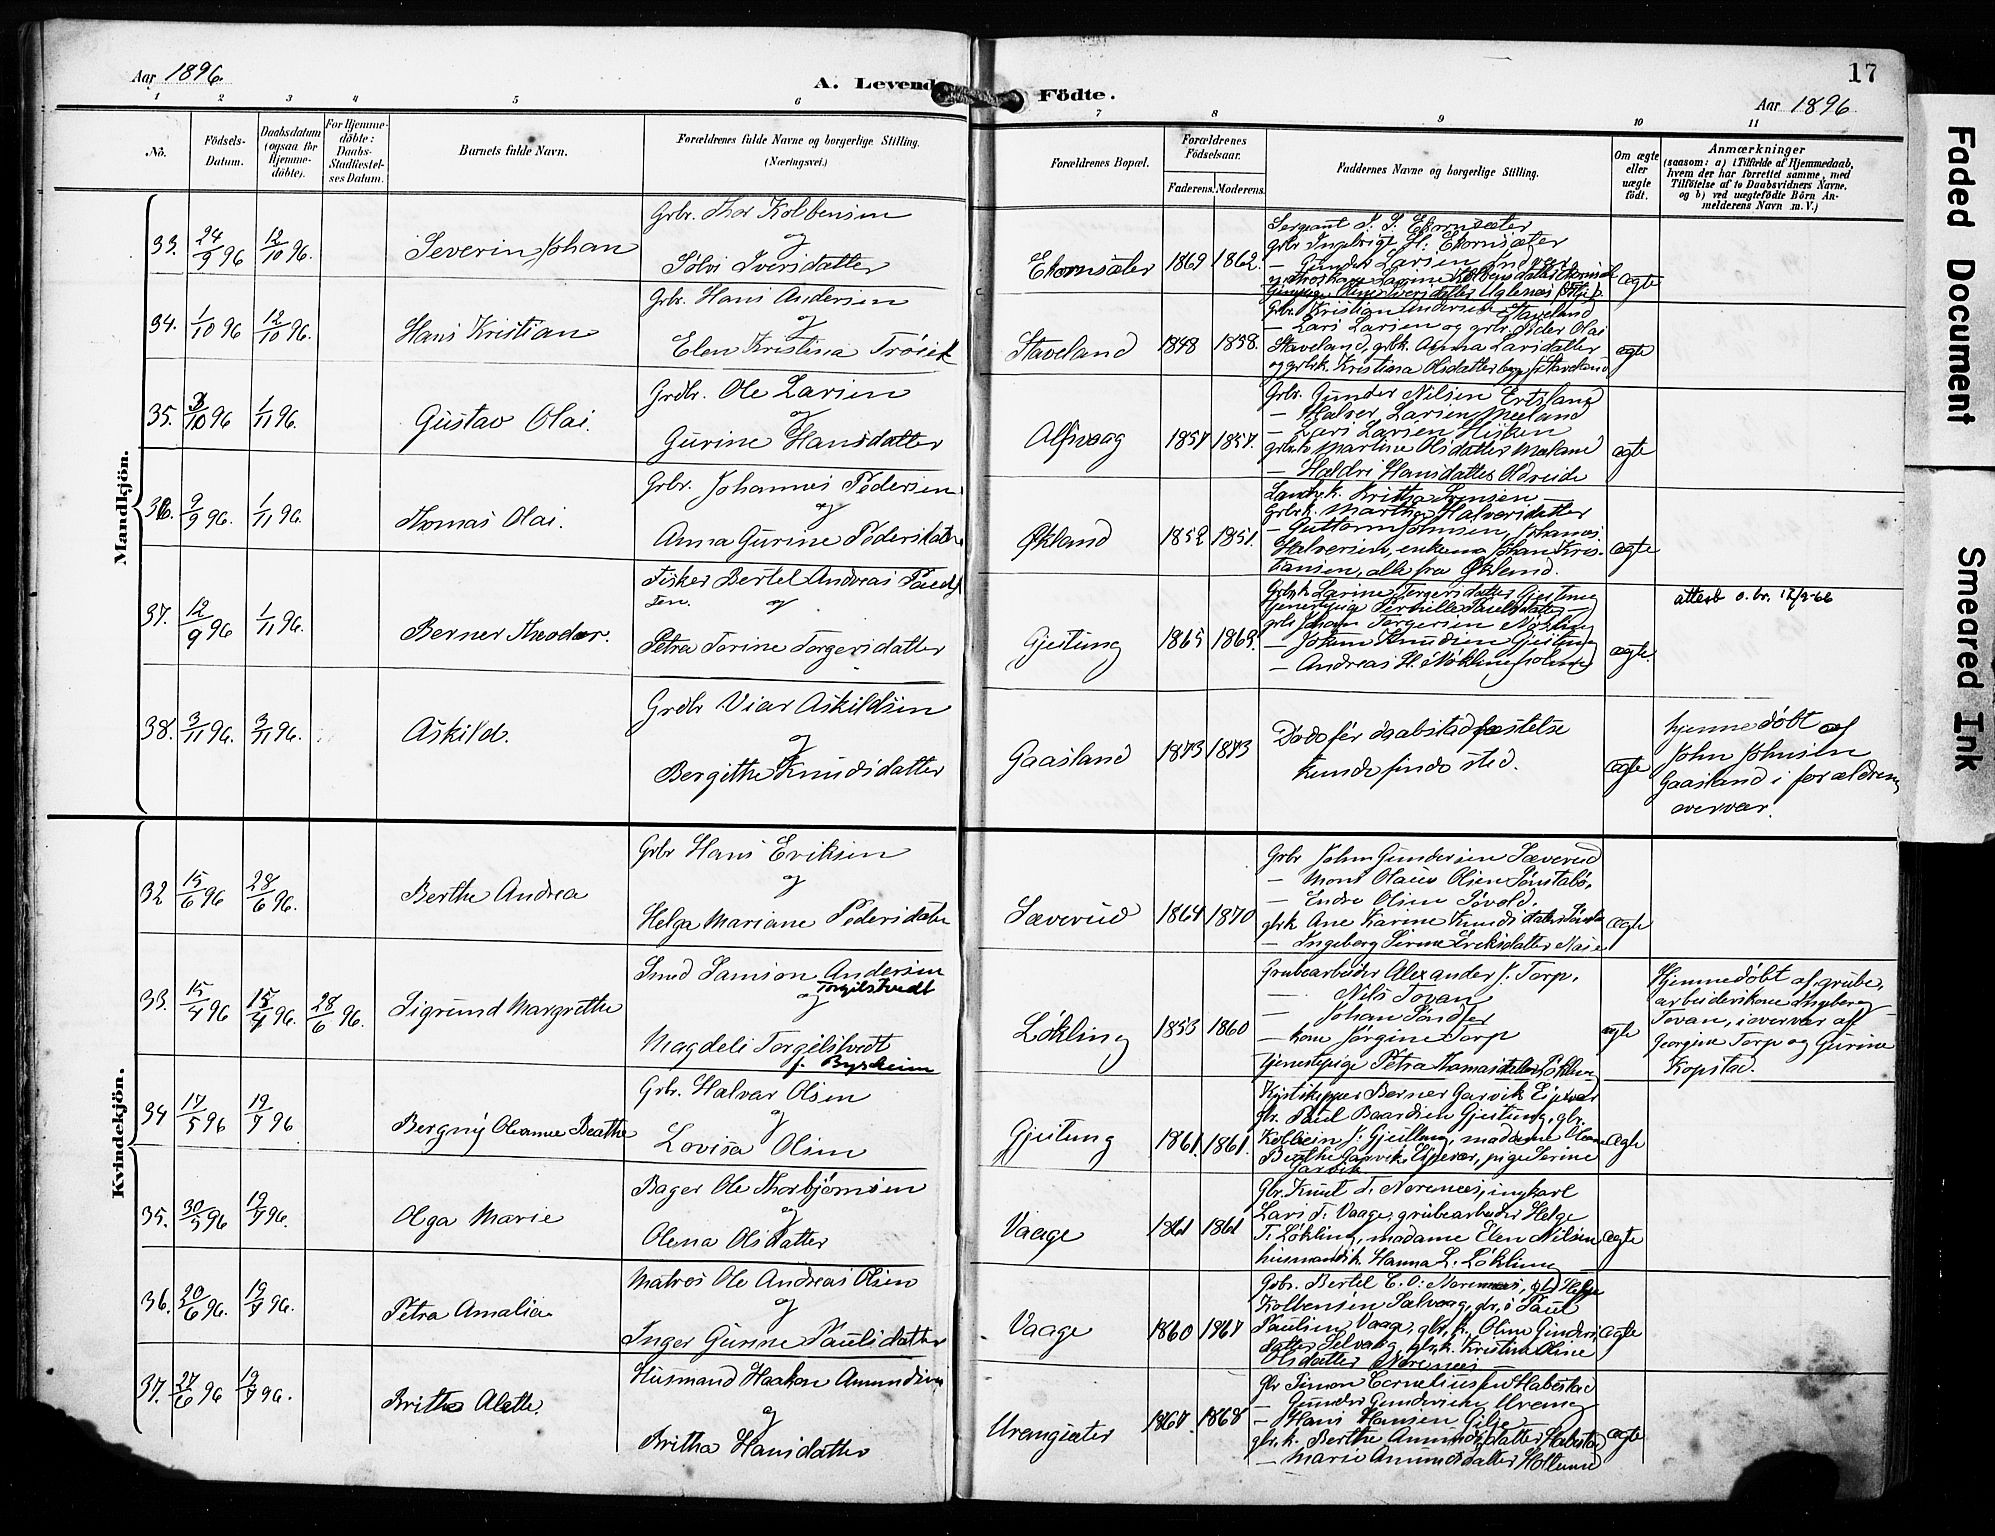 Aar 1896.
A. Levende Födte.
17
Aar 1896
1 2 3 4 5 6 7 8 9 10 11
No.
Födsels-
Datum.
Daabsdatum
(ogsaa for
Hjemme-
döbte).
For Hjemme-
döbte:
Daabs-
Stadfæstel-
ses Datum.
Barnets fulde Navn.
Forældrenes fulde Navne og borgerlige Stilling.
(Næringsvei.)
Forældrenes Bopæl.
Forældrenes
Födselsaar.
Faderens. Moderens.
Faddernes Navne og borgerlige Stilling.
Om ægte
eller
uægte
födt.
Anmærkninger
(saasom: a) i Tilfælde af Hjemmedaab,
hvem der har forrettet samme, med
Tilföielse af to Daabsvidners Navne,
og b) ved uægtefödte Börn An-
melderens Navn m. V.)
Mandkjön.
33. 24/9 96 12/10 96. Severin Johan
Grbr. Thor Kolbensen
og
Sølvi Iversdatter
Ekornsæter 1869 1862.
Sergeant J. J. Ekornsæter
grbr Ingebrigt H. Ekornsæter
ægte
34. 1/10 96 12/10 96. Hans Kristian
Grbr. Hans Andersen
og
Elen Kristina Trøien
Staveland 1848 1858.
Grbr. Kristian Andersen Staveland
— Lars Larsen og grbr. Peder Olai
Staveland, grbk. Anna Larsdatter
og grbrk. Kristina Olsdatter
ægte
35. 3/10 96 1/11 96. Gustav Olai.
Grdbr. Ole Larsen
og
Gurine Hansdatter
Alfsvaag 1857 1857.
Grbr. Gunder Nilsen
— Halver Larsen Meeland
— Lars Larsen Hisken
Martine Olsdatter
— Hansdatter Oldreide
ægte
36. 9/9 96. 1/11 96. Thomas Olai.
Grbr. Johannes Pedersen
og
Anna Gurine Pedersdatter
Økland 1852 1851.
Grbrk. Martha Halversdatter
— Guttorm Johnsen, Johannes
Halversen, enkema Johan Kris-
tansen, alle fra Økland.
ægte
37. 12/9 96 1/11 96. Berner Theodor.
Fisker Bertel Andreas Paul-
sen. og
Petra Torine Torgersdatter
Gjeitung 1865 1869.
Grbrk Larine Torgersdatter Gjeitung
— Johan Knudsen Gjeitung
— Andreas H.
ægte.
attest o. br. 12/9-66
38. 3/11 96. 3/11 96. Askild.
Grdbr Viar Askildsen
og
Bergithe Knudsdatter
Gaasland 1873 1873
Døde før daabstadfæstelse
kunde finde sted.
ægte
hjemmedøbt af
John Johnsen
Gaasland i forældrenes
overvær.
Kvindekjön.
32 15/6 96 28/6 96. Berthe Andrea
Grbr Hans Eriksen
og
Helga Mariane Pedersdatter
Sæverud 1864 1870
Grbr John Gundersen Sæverud
— Mons Olaus Olsen Sønstabø,
— Endre Olsen Søvold.
gbrk Ane Karine Knudsdatter
— Ingeborg Sirine Eriksdatter
ægte
33. 15/4 96 15/4 96. 28/6 96. Sigrund Margrethe
Smed Samson Andersen
Torgilstvedt
og
Magdeli Torgilstvedt
f. Bysheim
Løkling 1853 1860
Grubearbeider Alexander J. Torp,
— Nils Tovan
— Johan Søndfør
— kone Jørgine Torp
tjenestepige Petra Thomasdatter Løkling
ægte
Hjemmedøbt af grube-
arbeiderskone Ingeborg
Tovan, i overvær af
Georgine Torp og Gurine
Kopstad.
34 17/5 96 19/7 96 Bergny Oleanne Beathe
Grbr. Halvar Olsen
og
Lovisa Olsen
Gjeitung 1861 1861.
Kystskipper Berner Garvik Espevær
gbr. Paul Baardsen Gjeitung, gbr.
Kolbein J. Gjeitung, madame
Berthe Garvik Espevær, pige Serine
Garvik
ægte
35. 30/5 96 19/7 96. Olga Marie
Bager Ole Thorbjørnsen
og
Olena Olsdatter
Vaage 1861 1861
Gbr. Knut T. Norenæs, ungkarl
Lars T. Vaage, grubearbeider Helge
T. Løkling, madame Elen Nilsen
husmandsk. Hanna L. Løkling
ægte
36. 20/6 96. 19/7 96. Petra Amalia
Matros Ole Andreas Olsen
og
Inger Gurine Paulsdatter
Vaage 1860 1867
Grbr. Bertel C. O. Norenæs, gbr Helge
Kolbensen Selvaag, gbr. s. Paul
Paulsen Vaage, gbr. k. Oline Gunders-
datter Selvaag, gbr. k. Kristine Oline
Olsdatter Norenæs
ægte
37. 27/6 96 19/7 96. Britha Alette.
Husmand Haakon Amundsen
og
Britha Hansdatter
Urangsæter 1867. 1868
gbr Simon Corneliussen Habestad
— Gunder Gundersen Urang
— Hans Hansen Gilje
gbr. k. Berthe Amundsdatter Habestad
— Marie Amundsdatter
ægte
Faded Document
Smeared Ink